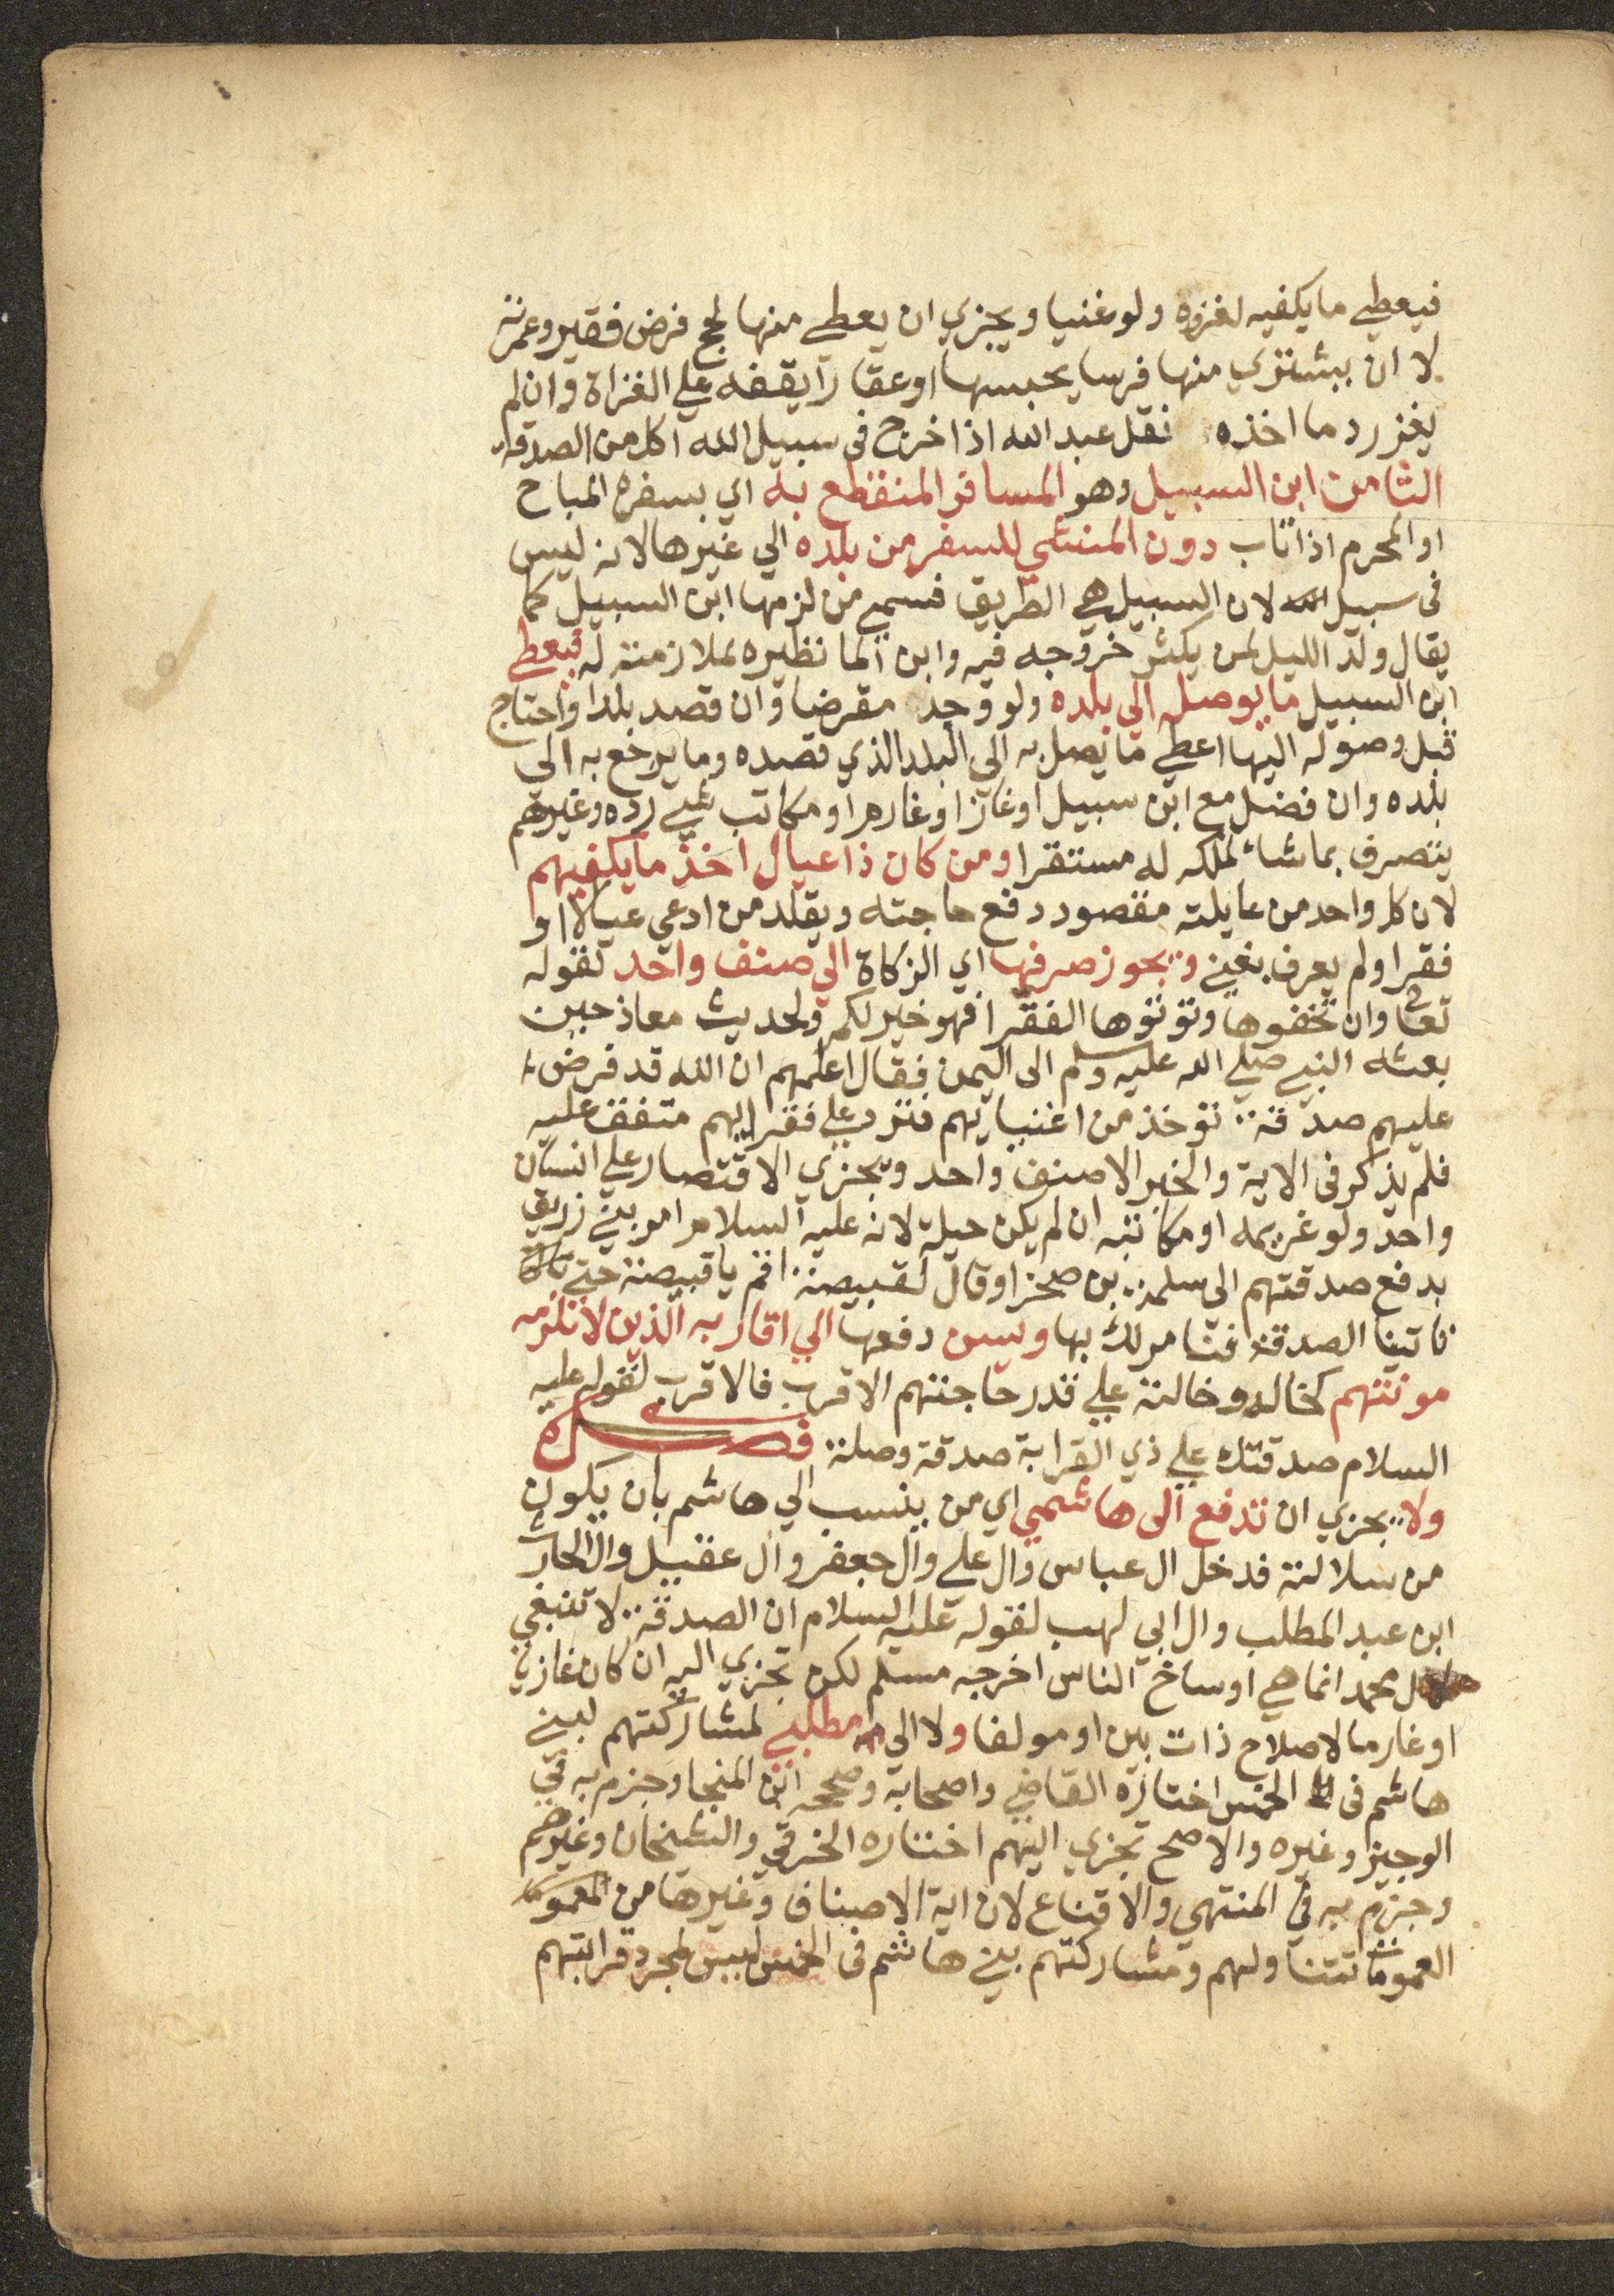 فيعطي ما يكفيه لغزوه ولو غنيا ويجزي ان يعطي منها لحج فرض فقير وعمرته
لا ان يشتري منها فرسا يحبسها او عقارا يقفه علي الغزاة وان لم
يغز رد ما اخذه نقل عبد الله اذا خرج في سبيل الله اكل من الصدقة
الثامن ابن السبيل وهو المسافر المنقطع به اي بسفره المباح
او المحرم اذا تاب دون المنشي للسفر من بلده الي غيرها لانه ليس
في سبيل لان السبيل هي الطريق فسمي من لزمها ابن السبيل كما
يقال ولد الليل لمن يكثر خروجه فيه وابن الما نظيره لملازمته له فيعطي
ابن السبيل ما يوصله الي بلده ولو وجد مقرضا وان قصد بلدا واحتاج
قبل وصوله اليها اعطي ما يصل به الي البلد الذي قصده وما يرجع به الي
بلده وان فضل مع ابن سبيل او غاز او غارم او مكاتب شي رده وغيرهم
يتصرف بما شاء لملكه له مستقرا ومن كان ذا عيال اخذ ما يكفيهم
لان كل واحد من عايلته مقصود دفع حاجته ويقلد من ادعي عيالا او
فقرا ولم يعرف بغني ويجوز صرفها اي الزكاة الي صنف واحد لقوله
تعالى وان تخفوها وتوتوها الفقرا فهو خير لكم ولحديث معاذ حين
بعثه النبي صلي الله عليه وسلم الى اليمن فقال اعلمهم ان الله قد فرض
عليهم صدقة توخذ من اغنيايهم فترد علي فقرايهم متفق عليه
فلم يذكر في الاية والخبر الا صنف واحد ويجزي الاقتصار علي انسان
واحد ولو غريمه او مكاتبه ان لم يكن حيلة لانه عليه السلام امر بني زريق
بدفع صدقتهم الى سلمة بن صخر وقال لقبيصة اقم يا قبيصة حتي
تاتينا الصدقة فنامر لك بها ويسن دفعها الي اقاربه الذين لا تلزمه
مونتهم كخاله وخالته علي قدر حاجتهم الاقرب فالاقرب لقوله عليه
السلام صدقتك علي ذي القرابة صدقة وصلة فصل
ولا يجزي ان تدفع الى هاشمي اي من ينسب الي هاشم بان يكون
من سلالته فدخل ال عباس وال علي وال جعفر وال عقيل وال الحارث
ابن عبد المطلب وال ابي لهب لقوله عليه السلام ان الصدقة لا تنبغي
لال محمد انما هي اوساخ الناس اخرجه مسلم لكن تجزي اليه ان كان غازيا
او غارما لاصلاح ذات بين او مولفا ولا الى مطلبي لمشاركتهم لبني
هاشم في الخمس اختاره القاضي واصحابه وصححه ابن المنجا وجزم به في
الوجيز وغيره والاصح تجزي اليهم اختاره الخرقي والشيخان وغيرهم
وجزم به في المنتهي والاقناع لان اية الاصناف وغيرها من
العمومات تتناولهم ومشاركتهم بني هاشم في الخمس ليس لمجرد قرابتهم